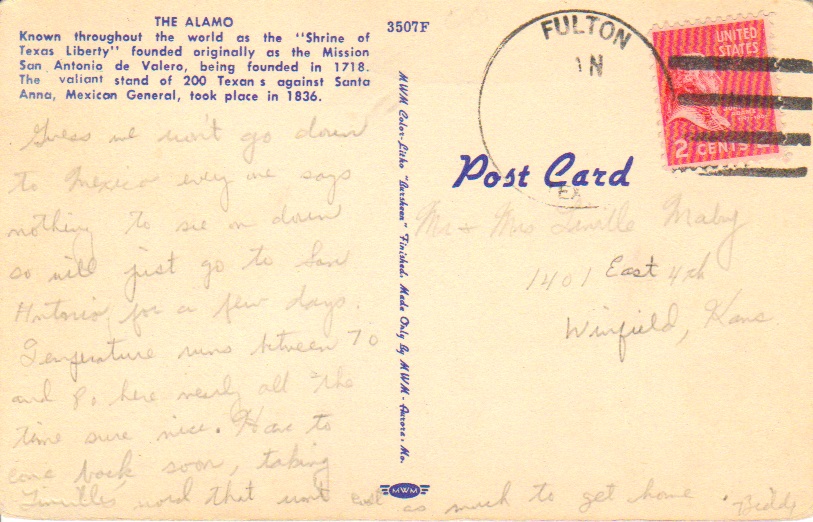 THE ALAMO
Known throughout the world as the "Shrine of
Texas Liberty" founded originally as the Mission
San Antonio de Valero, being founded in 1718.
The valiant stand of 200 Texans against Santa
Anna, Mexican General, took place in 1836.
3507F
Guess we won't go down
to Mexico every one says
nothing to see on down
so will just go to San
Antonio for a few days.
Temperature runs between 70
and 80 here nearly all the
time sure nice. Have to
come back soon, taking
Linville's word that wont cost as much to get home.
MWM Color-Litho "Aursheen" Finished. Made Only By MWM - Aurora, Mo.
MWM
FULTON
JAN
TEX.
UNITED
STATES
2 CENTS 2
Post Card
Mr & Mrs Linville
1401 East 4th
Winfield, Kans